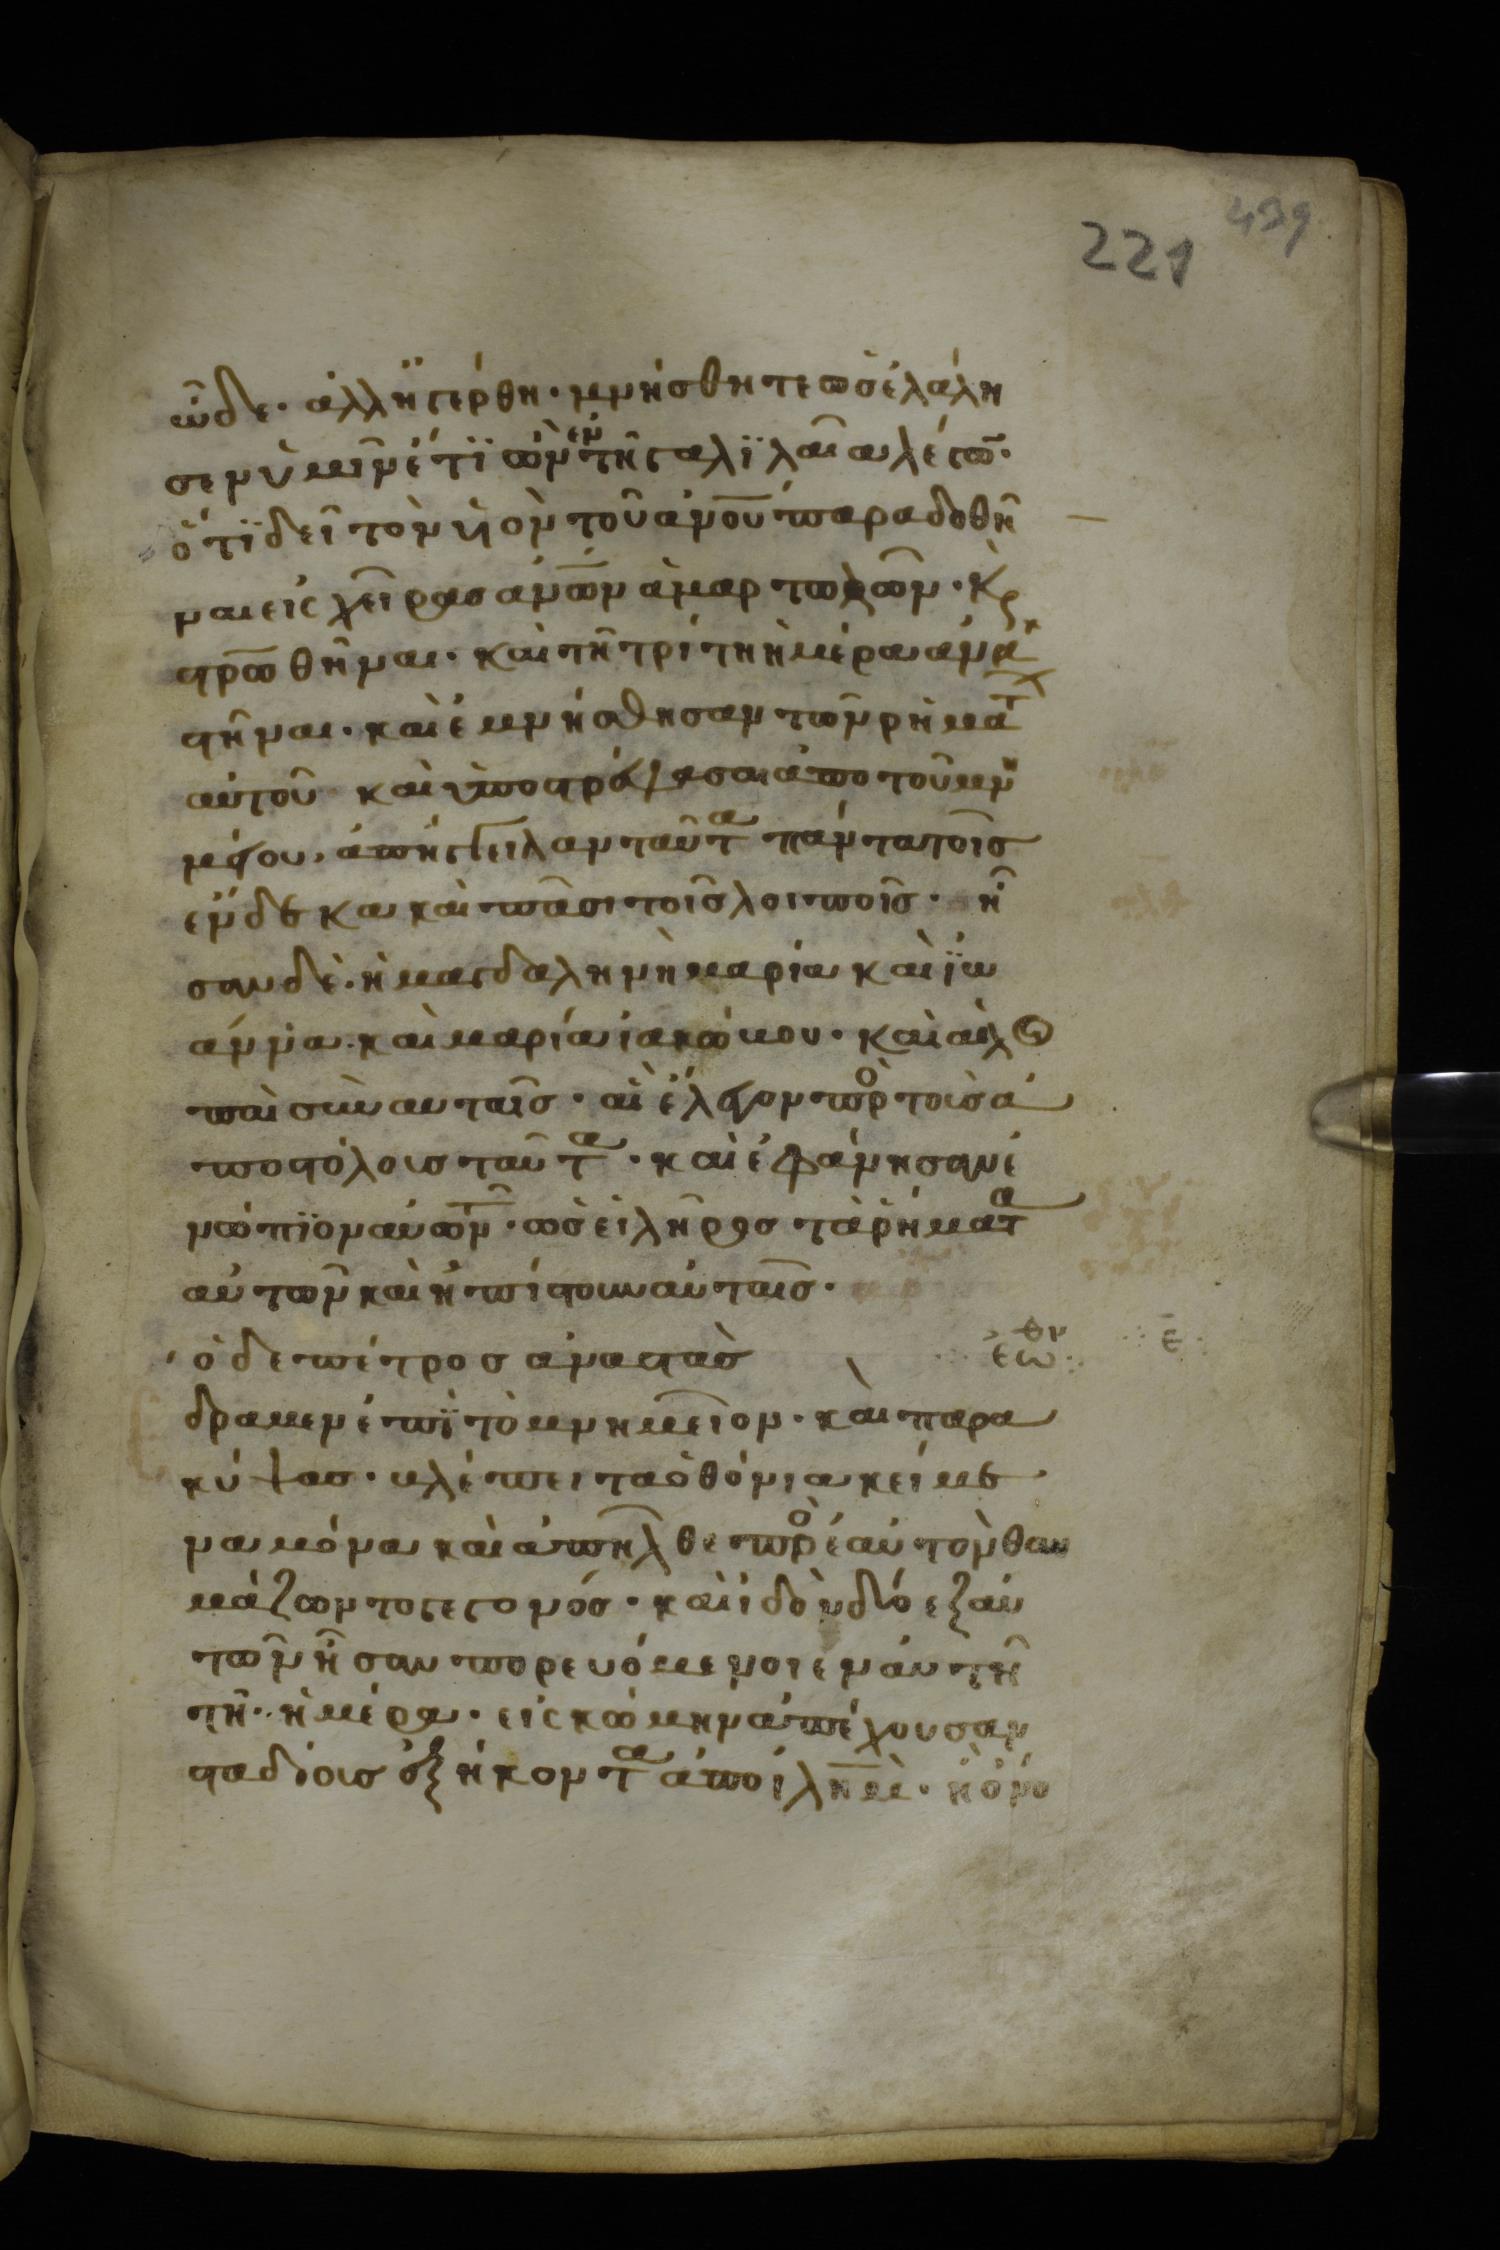 439
221
ὧδε· ἀλλ ἠγέρθη· μνήσθητε ὡς ἐλάλη
σεν ὑμῖν ἔτϊ ὢν ἐν τῆ γαλϊλαία λέγω̅·
ὅτϊ δεῖ τὸν ὑὸν τοῦ ἀν̅ο̅υ̅ παραδοθῆ
ναι εἰς χεῖρας ἀν̅ω̅ν̅ ἁμαρτωλῶν· κ
στρω̅θῆναι· καὶ τῆ τρίτη ἡμέρα ἀνα
στῆναι· καὶ ἐμνήσθησαν τῶν ῥημάτ
αὐτοῦ καὶ ὑποστρέψασαι ἀπο τοῦ μνη
μείου, ἀπήγγειλαν ταῦτα πάντα τοῖς
ἕνδεκα καὶ πᾶσι τοῖς λοιποῖς· ἦ
σαν δὲ· ἡ μαγδαληνὴ μαρία καὶ ϊω
άννα· καὶ μαρία ἰακώβου· καὶ αἱ λοι
παὶ σὺν αυταῖς· αἳ ἔλεγον πρὸ τοὺς ἀ
ποστόλους ταῦτα· καὶ ἐφάνησαν ἐ
νώπϊον αὐτῶν· ὡσεὶ λῆρος τὰ ῥήματα
αὐτῶν καὶ ἠπίστουν αὐταῖς·
ὁ δε πέτρος ἀναστὰς
ἑωθν ε
δραμεν ἐπϊ τὸ μνημεῖον· καὶ παρα
κύψας· βλέπει τα ὀθόνια κείμε
να μόνα καὶ ἀπῆλθε πρὸ ἑαυτὸν θαυ
μάζων το γεγονός· καὶ ἰδοὺ δύο εξ αὐ
τῶν ἦσαν πορευόμενοι ἐν αὐτῆ
τῆ ἡμέρα· εἰς κώμην ἀπέχουσαν
σταδίους ἑξήκοντα ἀπο ἱλημ· ἧ ὄνο